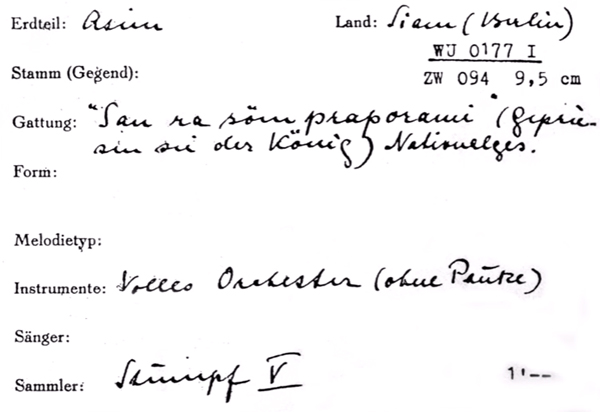 Erdteil: Asien Land: Siam (Berlin)
WU 0177 I
Stamm (Gegend): ZW 094 9,5 cm
Gattung: "San ra söm praporami" (Geprie-
sen sei der König) Nationalges.
Form:
Melodietyp:
Instrumente: Volles Orchester (ohne Pauke)
Sänger:
Sammler: Stumpf V 1'--